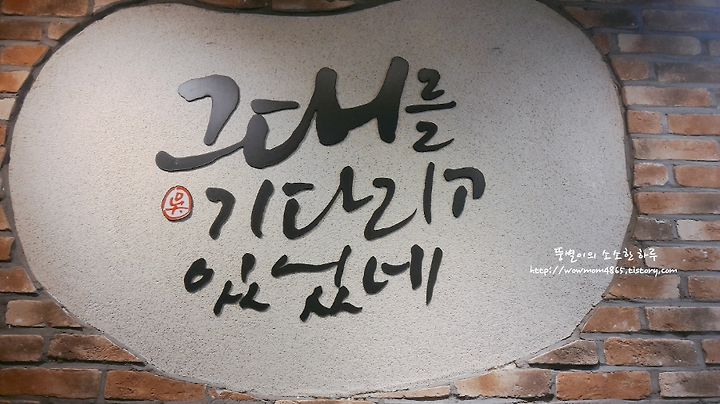 그대를
기다리고
있었네
뚱벨이의 소소한 하루
http://wowmom4865.tistory.com